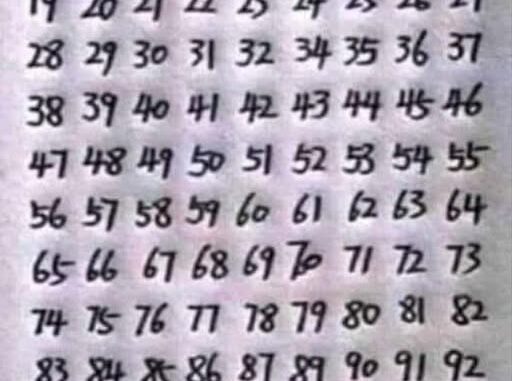 19 20 21 22 23 24 25 26 27
28 29 30 31 32 34 35 36 37
38 39 40 41 42 43 44 45 46
47 48 49 50 51 52 53 54 55
56 57 58 59 60 61 62 63 64
65 66 67 68 69 70 71 72 73
74 75 76 77 78 79 80 81 82
83 84 85 86 87 89 90 91 92